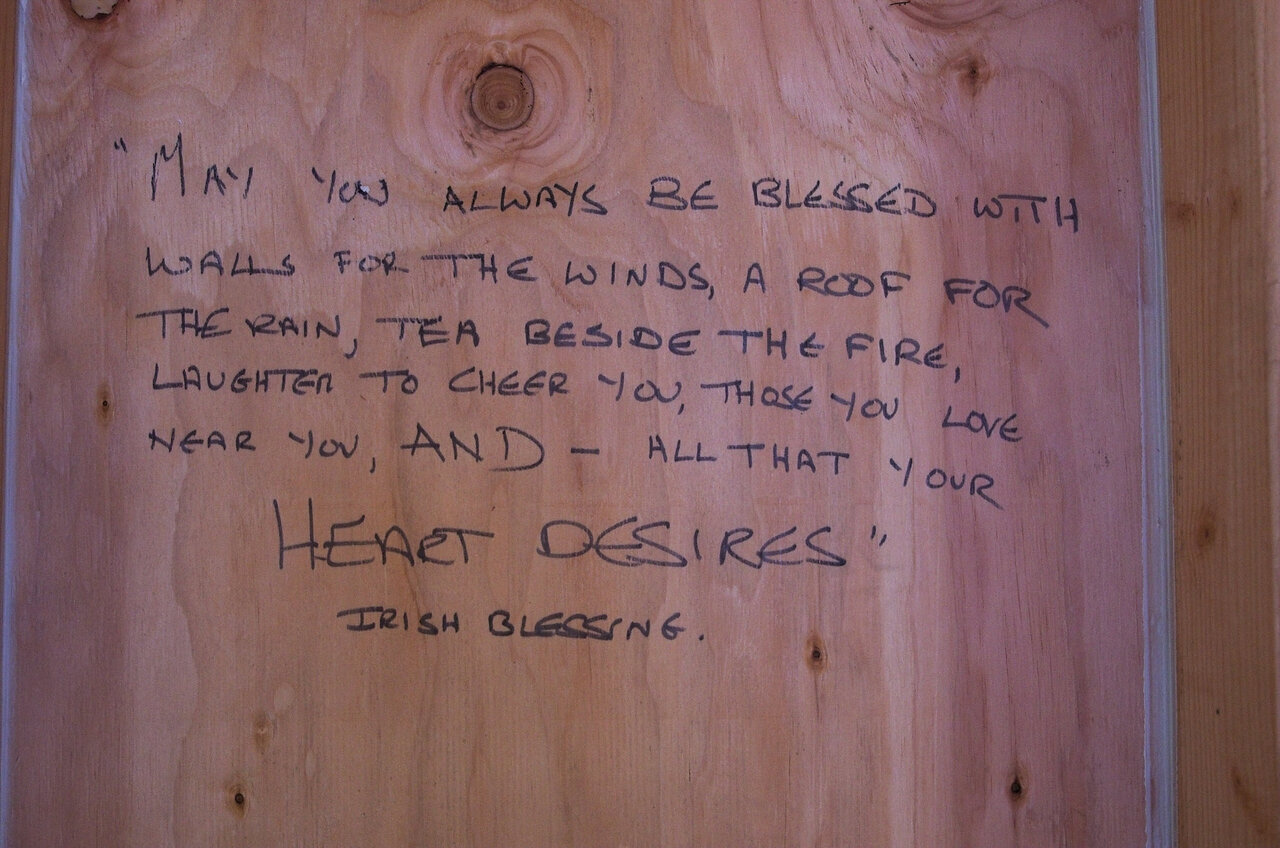 "MAY YOU ALWAYS BE BLESSED WITH
WALLS FOR THE WINDS, A ROOF FOR
THE RAIN, TEA BESIDE THE FIRE,
LAUGHTER TO CHEER YOU, THOSE YOU LOVE
NEAR YOU, AND - ALL THAT YOUR
HEART DESIRES"
IRISH BLESSING.